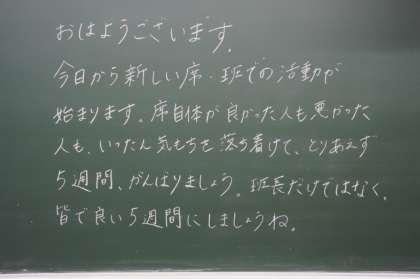 おはようございます。
今日から新しい席・班での活動が
始まります。席自体が良かった人も悪かった
人も、いったん気もちを落ち着けて、とりあえず
5週間、がんばりましょう。班長だけではなく、
皆で良い5週間にしましょうね。